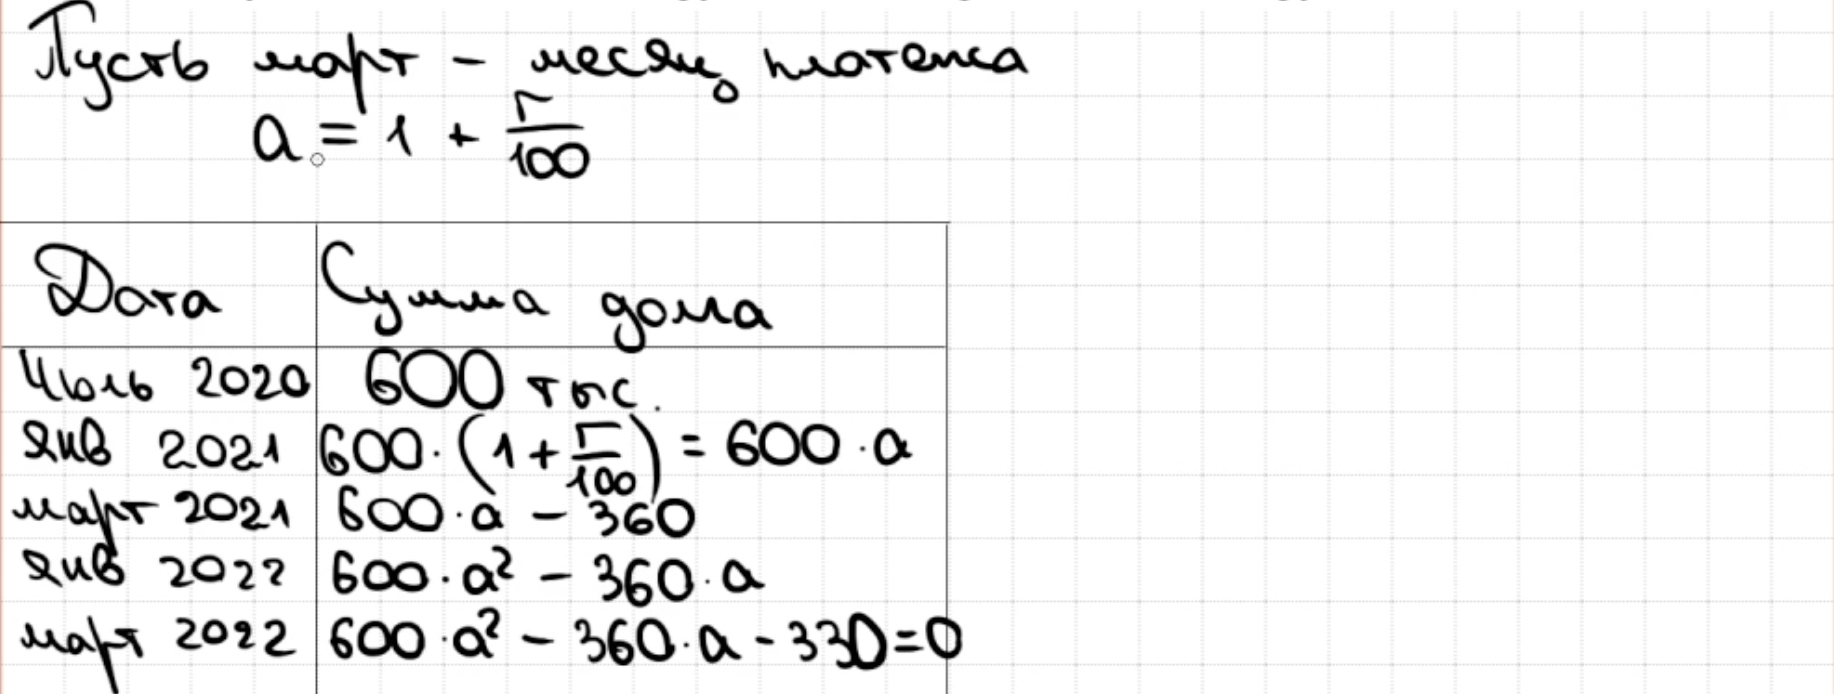 Пусть март - месяц платежа
a = 1 + r/100
Дата Сумма долга
Июль 2020 600 тыс.
янв 2021 600·(1 + r/100) = 600·a
март 2021 600·a - 360
янв 2022 600·a² - 360·a
март 2022 600·a² - 360·a - 330=0